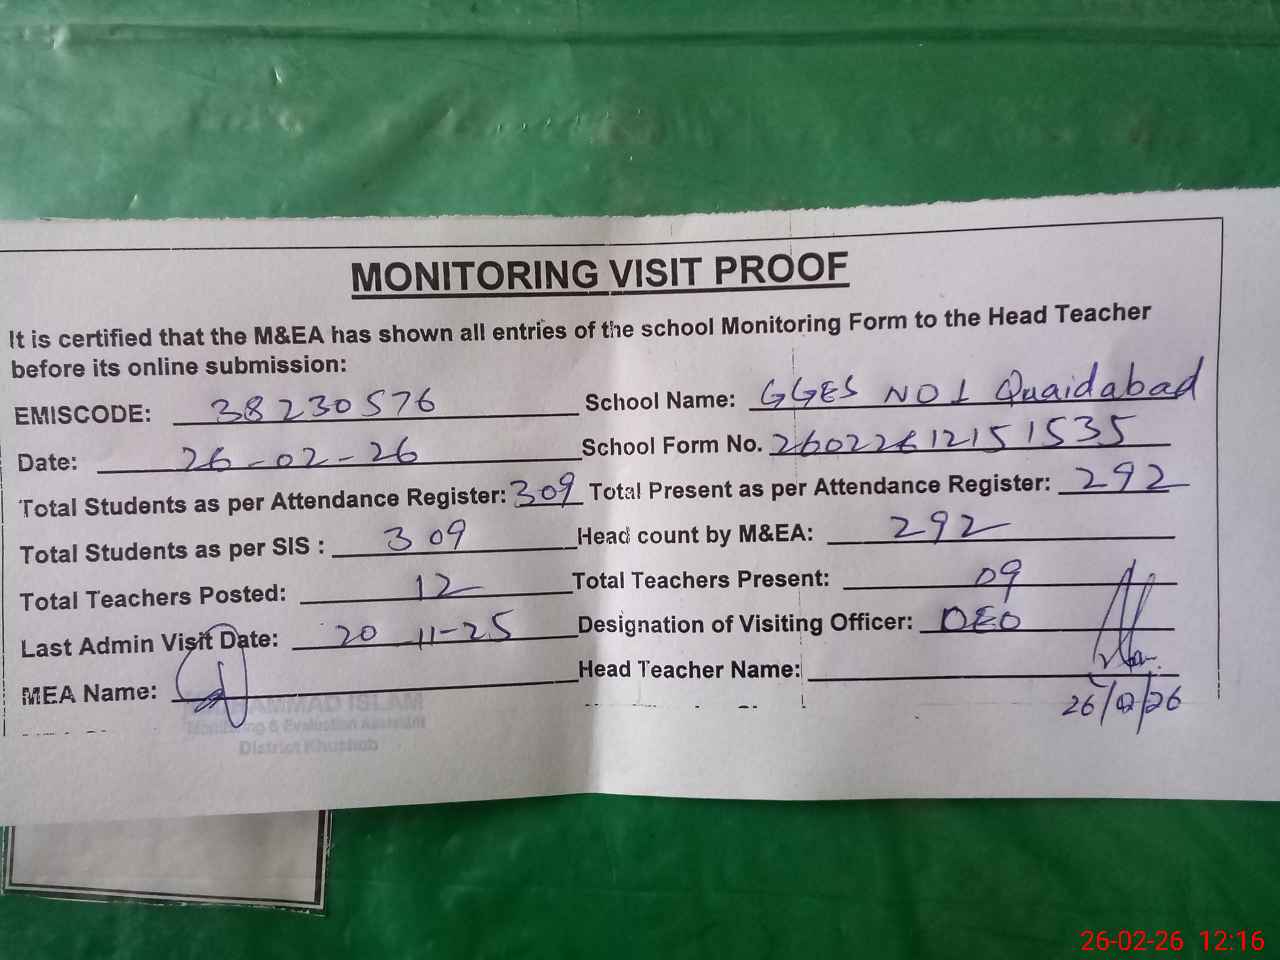 MONITORING VISIT PROOF
It is certified that the M&EA has shown all entries of the school Monitoring Form to the Head Teacher
before its online submission:
EMISCODE: 38230576 School Name: GGES NO1 Quaidabad
Date: 26-02-26 School Form No. 26022612151535
Total Students as per Attendance Register: 309 Total Present as per Attendance Register: 292
Total Students as per SIS : 309 Head count by M&EA: 292
Total Teachers Posted: 12 Total Teachers Present: 09
Last Admin Visit Date: 20 11-25 Designation of Visiting Officer: DEO
MEA Name: Head Teacher Name:
26/02/26
MUHAMMAD ISLAM
Monitoring & Evaluation Assistant
District Khushab
26-02-26 12:16